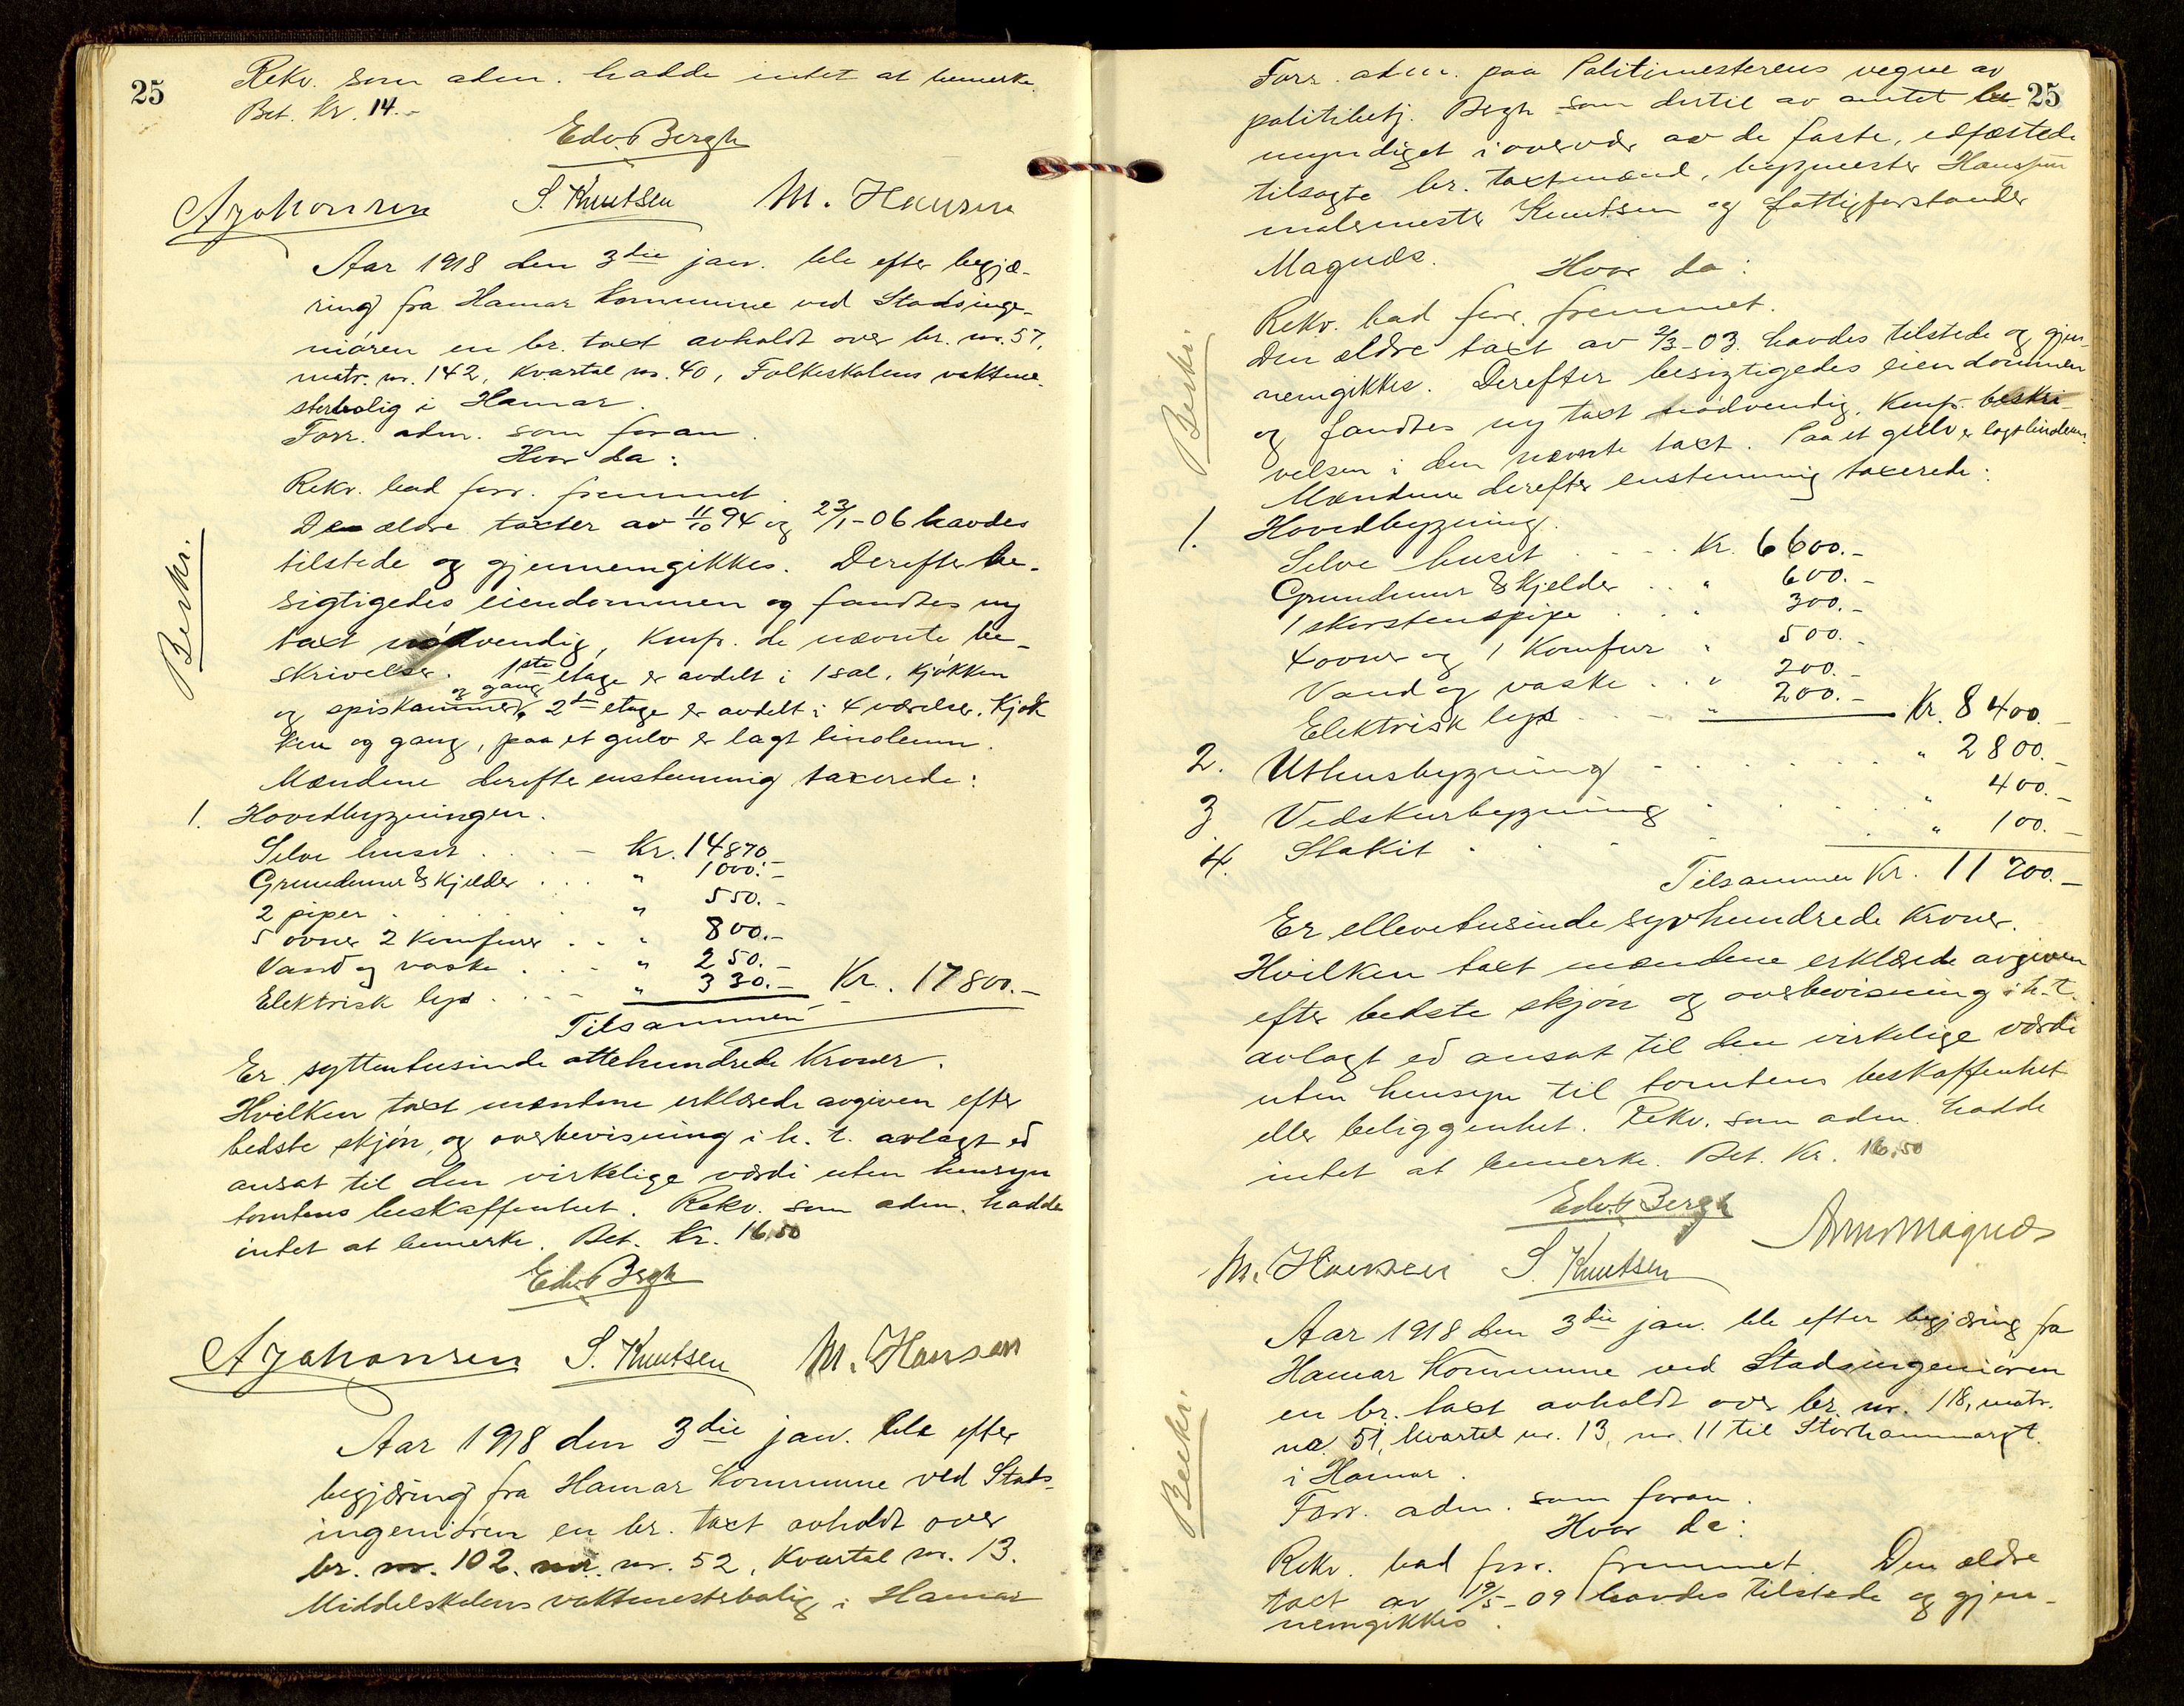 25
Rekv. som adm. hadde intet at bemerke.
Bet. Kr. 14.-
Edv. Bergh
A Johansen S. Knutsen M. Hansen
Aar 1918 den 3die jan. ble efter begjæ-
ring fra Hamar Kommune ved Stadsinge-
niøren en br. taxt avholdt over br. nr. 57,
matr. nr. 142, Kvartal nr. 40, Folkeskolens vaktme-
sterbolig i Hamar.
Forr. adm. som foran.
Hvor da:
Beskr.
Rekv. bad forr. fremmet.
De ældre taxter av 11/10 94 og 23/1-06 havdes
tilstede og gjennemgikkes. Derefter be-
sigtigedes eiendommen og fandtes ny
taxt nødvendig, Kmfr. de nævnte be-
skrivelser. 1ste etage er avdelt i 1 sal, kjøkken
og spiskammer og gang, 2den etage er avdelt i 4 værelser, Kjøk
ken og gang, paa et gulv er lagt linoleum.
Mændene derefter enstemmig taxerede:
1. Hovedbygningen.
Selve huset . . . - Kr. 14870.-
Grundmur & Kjelder . . . " 1000.-
2 piper . . . . " 550.-
5 ovner 2 Komfurer . . . " 800.-
Vand og vaske . . . " 250.-
Elektrisk lys . . . - " 330.- Kr. 17800.-
Tilsammen
Er syttentusinde ottehundrede Kroner.
Hvilken taxt mændene erklærede avgiven efter
bedste skjøn, og overbevisning i h. t. avlagt ed
ansat til den virkelige værdi uten hensyn
tomtens beskaffenhet. Rekv. som adm. hadde
intet at bemerke. Bet. Kr. 16,50
Edv. Bergh
A Johansen S. Knutsen M. Hansen
Aar 1918 den 3die jan. ble efter
begjæring fra Hamar Kommune ved Stads-
ingeniøren en br. taxt avholdt over
br. nr. 102. nr. 52, Kvartal nr. 13.
Middelskolens vaktmesterbolig i Hamar
25
Forr. adm. paa Politimesterens vegne av
politibetj. Bergh som dertil av amtet be-
myndiget i overvær av de faste, edfæstede
tilsagte br. taxtmænd, bygmester Hansen
malermester Knutsen og fattigforstander
Magnæs.
Hvor da:
Beskr.
Rekv. bad forr. fremmet.
Den ældre taxt av 2/3-03 havdes tilstede og gjen-
nemgikkes. Derefter besigtigedes eiendommen
og fandtes ny taxt nødvendig, Kmfr. beskri-
velsen i den nævnte taxt. Paa et gulv er lagt linoleum.
Mændene derefter enstemmig taxerede:
1. Hovedbygning.
Selve huset . . - . Kr. 6600.-
Grundmur & Kjelder . . " 600.-
1 skorstenspipe . . . " 300.-
4 ovner og 1 Komfur " 500.-
Vand og vaske . . " 200.-
Elektrisk lys . . . - " 200.- Kr. 8400.-
2. Uthusbygning - . . . . . . " 2800.-
3 Vedskurbygning . . . . " 400.-
4. Stakit . . . . . . " 100.-
Tilsammen Kr. 11700.-
Er ellevetusinde syvhundrede Kroner.
Hvilken taxt mændene erklærede avgiven
efter bedste skjøn og overbevisning i h. t.
avlagt ed ansat til den virkelige værdi
uten hensyn til tomtens beskaffenhet
eller beliggenhet. Rekv. som adm. hadde
intet at bemerke. Bet. Kr. 16,50
Edv. Bergh
M. Hansen S. Knutsen Magnæs
Aar 1918 den 3die jan. ble efter begjæring fra
Hamar Kommune ved Stadsingeniøren
en br. taxt avholdt over br. nr. 118, matr.
no. 51, Kvartal nr. 13, nr. 11 til Storhammargt.
i Hamar.
Forr. adm. som foran.
Hvor da:
Beskr.
Rekv. bad forr. fremmet. Den ældre
taxt av 19/5-09 havdes tilstede og gjen-
nemgikkes.